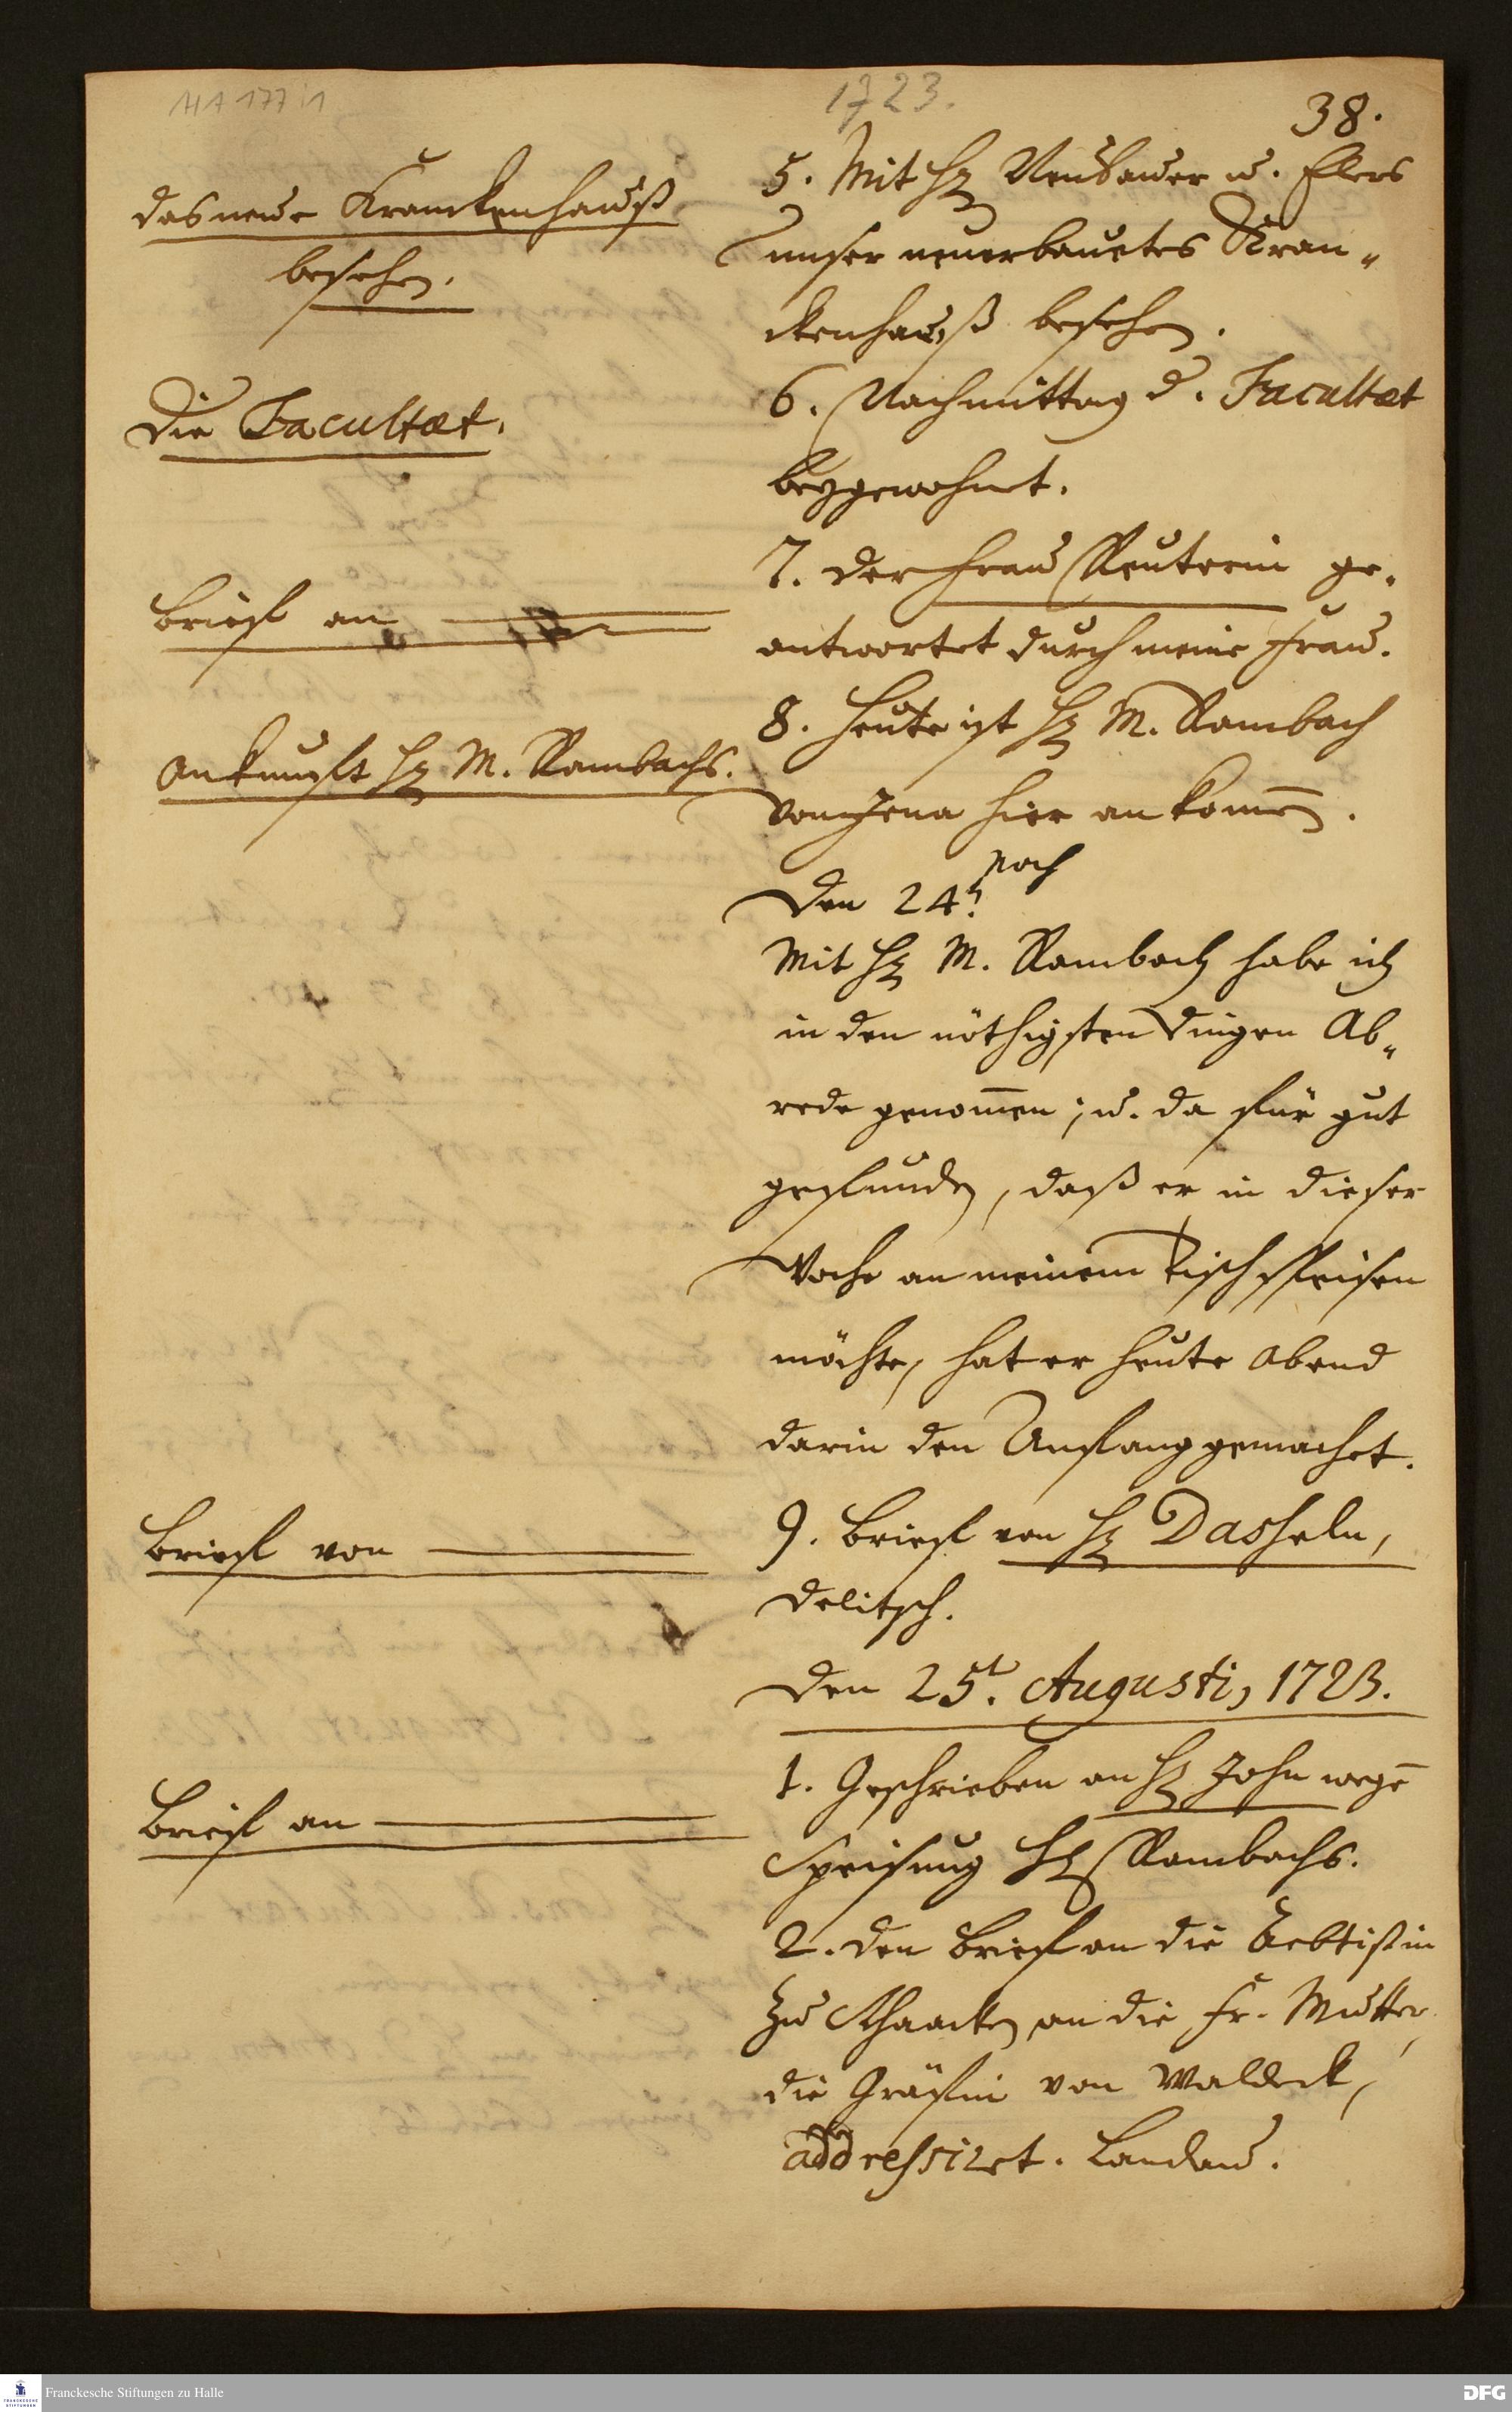 HA 177:1
1723.
38.
das neue Kranckenhauß
besehen.
5. Mit H. Neubauer u. Elers
unser neuerbauetes Kran„
ckenhauß besehen.
Die Facultæt.
6. Nachmittag d. Facultæt
beygewohnt.
Brief an
7. der Frau Reuterin ge„
antwortet durch meine Frau.
Ankunfft H. M. Rambachs.
8. Heute ist H. M. Rambach
von Jena hier ankom̄en.
Den 24. noch
Mit H. M. Rambach habe ich
in den nöthigsten Dingen Ab„
rede genom̄en; u. da für gut
gefunden, daß er in dieser
Woche an meinem Tisch speisen
möchte, hat er heute Abend
darin den Anfang gemachet.
Brief von
9. Brief von H. Dasseln,
Delitsch.
Den 25t. Augusti, 1723.
Brief an
1. Geschrieben an H. John wegē
Speisung H. Rambachs.
2. Den Brief an die Aebtißin
zu Schaacken, an die Fr. Mutter,
die Gräfin von Waldeck,
addressiret. Landau.
Franckesche Stiftungen zu Halle
FRANCKESCHE STIFTUNGEN
DFG